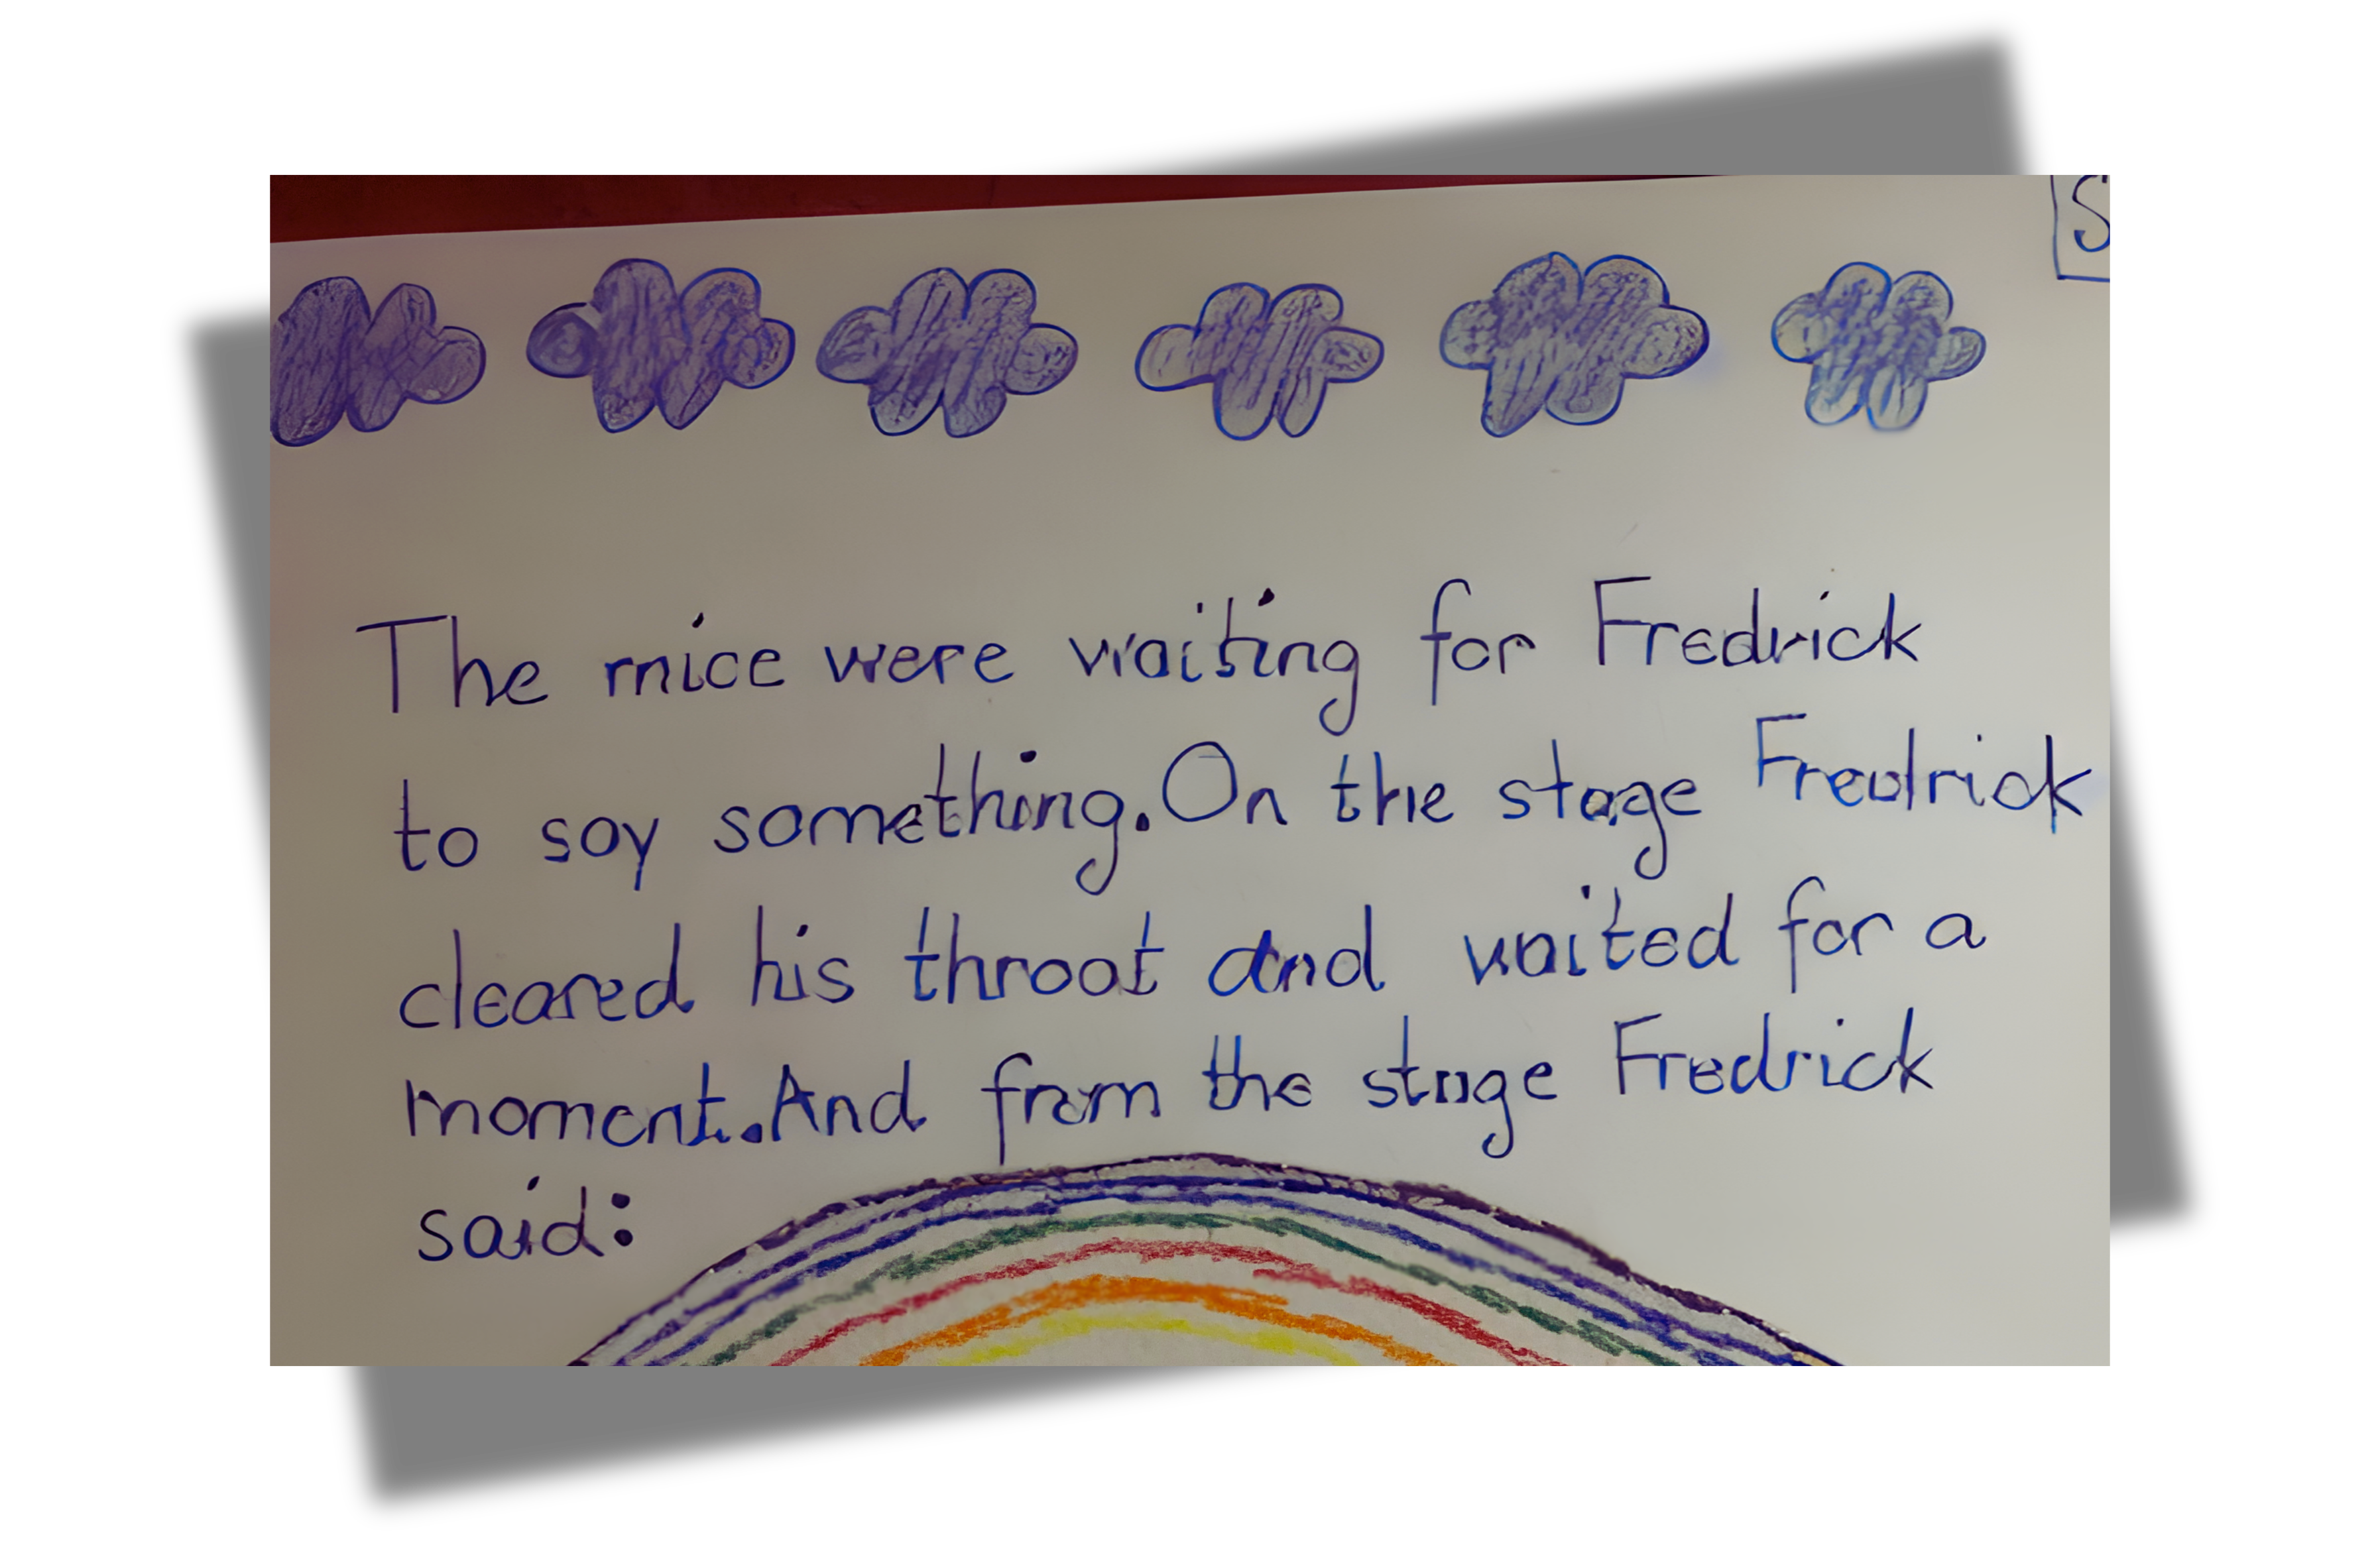 S
The mice were waiting for Fredrick
to say something.On the stage Fredrick
cleared his throat and waited for a
moment.And from the stage Fredrick
said: